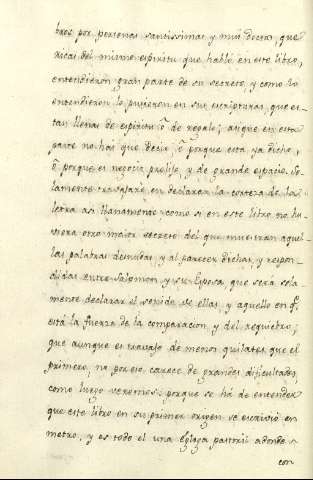 bres por personas santissimas y mui doctas, que
ricas del mismo espiritu que habló en este libro,
entendieron gran parte de su secreto, y como lo
entendieron lo pusieron en sus escripturas, que es-
tan llenas de espiritu ô de regalo; asi que en esta
parte no hai que decir, ô porque esta ya dicho,
ô porque es negocio prolijo, y de grande espacio. So-
lamente trabajaré en declarar la corteza de la
letra asi llanamente, como si en este libro no hu-
viera otro maior secreto del que muestran aque-
llas palabras desnudas, y al parecer dichas, y respon-
didas entre Salomon y su Esposa, que será sola
mente declarar el sonido de ellas, y aquello en q.
está la fuerza de la comparacion, y del requiebro;
que aunque es trabajo de menos quilates que el
primero, no por eso carece de grandes dificultades,
como luego veremos: porque se há de entender
que este libro en su primer origen se escrivió en
metro, y es todo el una Egloga pastoril adonde
con